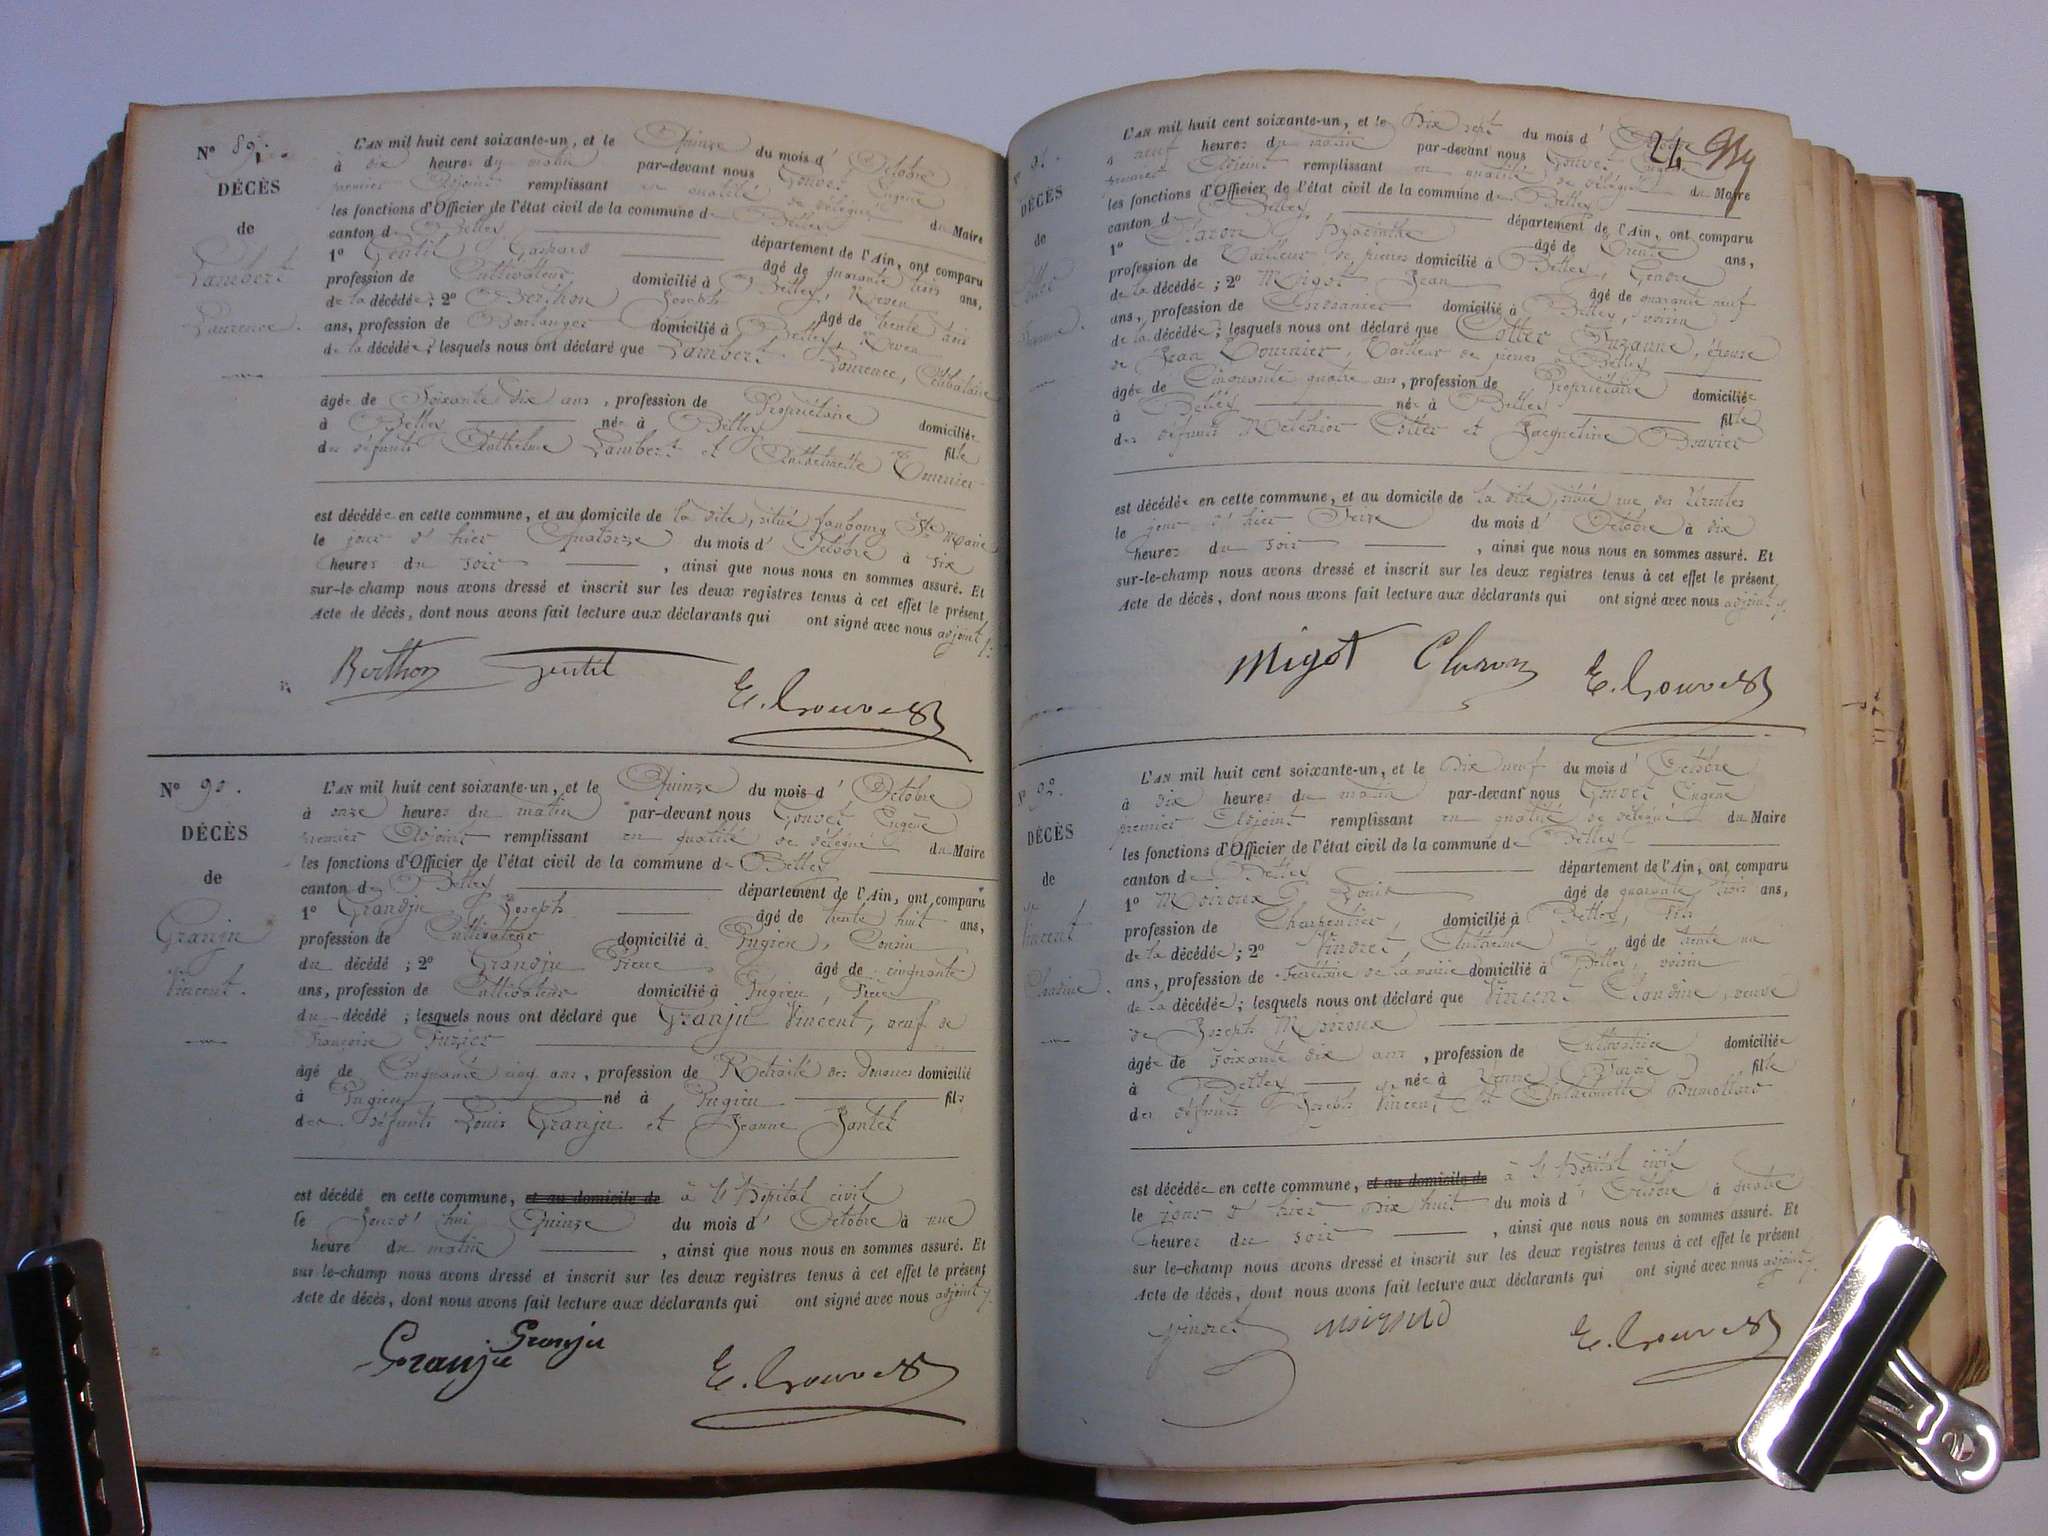 N° 89.
DÉCÈS
de
Lambert
Laurence.
L'AN mil huit cent soixante-un, et le Quinze du mois d' Octobre
à dix heures du matin par-devant nous Gouvet Eugène
premier Adjoint remplissant en qualité de délégué du Maire
les fonctions d'Officier de l'état civil de la commune de Belley
canton de Belley département de l'Ain, ont comparu
1° Gentil Gaspard âgé de quarante trois ans,
profession de Cultivateur domicilié à Belley, Neveu
de la décédée; 2° Berthon Joseph âgé de trente trois
ans, profession de Boulanger domicilié à Belley, Neveu
de la décédée; lesquels nous ont déclaré que Lambert Laurence, Célibataire
âgée de Soixante dix ans, profession de Propriétaire domiciliée
à Belley née à Belley fille
des défunts Anthelme Lambert et Anthelmette
est décédée en cette commune, et au domicile de la dite, situé faubourg Ste Marie
le jour d'hier Quatorze du mois d' Octobre à six
heures du soir, ainsi que nous nous en sommes assuré. Et
sur-le-champ nous avons dressé et inscrit sur les deux registres tenus à cet effet le présent
Acte de décès, dont nous avons fait lecture aux déclarants qui ont signé avec nous adjoint
Berthon Gentil E. Gouvet
N° 90.
DÉCÈS
de
Granju
Vincent.
L'AN mil huit cent soixante-un, et le Quinze du mois d' Octobre
à onze heures du matin par-devant nous Gouvet Eugène
premier Adjoint remplissant en qualité de délégué du Maire
les fonctions d'Officier de l'état civil de la commune de Belley
canton de Belley département de l'Ain, ont comparu
1° Grandju Joseph âgé de trente huit ans,
profession de Cultivateur domicilié à Pugieu, Cousin
du décédé; 2° Grandju Pierre âgé de cinquante
ans, profession de Cultivateur domicilié à Pugieu, Frère
du décédé; lesquels nous ont déclaré que Granju Vincent, veuf de
Françoise
âgé de Cinquante cinq ans, profession de Retraité des Douanes domicilié
à Pugieu né à Pugieu fils
des défunts Louis Granju et Jeanne Jantet
est décédé en cette commune, et au domicile de à l'Hopital civil
le jourd'hui Quinze du mois d' Octobre à une
heure du matin, ainsi que nous nous en sommes assuré. Et
sur-le-champ nous avons dressé et inscrit sur les deux registres tenus à cet effet le présent
Acte de décès, dont nous avons fait lecture aux déclarants qui ont signé avec nous adjoint
Granju Granju E. Gouvet
24
N° 91.
DÉCÈS
de
L'AN mil huit cent soixante-un, et le Dix sept du mois d' Octobre
à neuf heures du matin par-devant nous Gouvet Eugène
premier Adjoint remplissant en qualité de délégué du Maire
les fonctions d'Officier de l'état civil de la commune de Belley
canton de Belley département de l'Ain, ont comparu
1° Claron Hyacinthe âgé de Trente ans,
profession de Tailleur de pierres domicilié à Belley, Gendre
de la décédée; 2° Migot Jean âgé de quarante neuf
ans, profession de Cordonnier domicilié à Belley, voisin
de la décédée; lesquels nous ont déclaré que Cottet Suzanne, épouse
de Jean Tournier, Tailleur de pierres à Belley
âgée de Cinquante quatre ans, profession de Propriétaire domiciliée
à Belley née à Belley fille
des défunts Melchior Cottet et Jacqueline Bouvier
est décédée en cette commune, et au domicile de la dite, située rue des
le jour d'hier Seize du mois d' Octobre à dix
heures du soir, ainsi que nous nous en sommes assuré. Et
sur-le-champ nous avons dressé et inscrit sur les deux registres tenus à cet effet le présent
Acte de décès, dont nous avons fait lecture aux déclarants qui ont signé avec nous adjoint
Migot Claron E. Gouvet
N° 92.
DÉCÈS
de
Vincent
Claudine.
L'AN mil huit cent soixante-un, et le Dix neuf du mois d' Octobre
à dix heures du matin par-devant nous Gouvet Eugène
premier Adjoint remplissant en qualité de délégué du Maire
les fonctions d'Officier de l'état civil de la commune de Belley
canton de Belley département de l'Ain, ont comparu
1° Moiroux Louis âgé de quarante trois ans,
profession de Charpentier, domicilié à Belley, fils
de la décédée; 2° Vindret Anthelme âgé de trente un
ans, profession de Secrétaire de la mairie domicilié à Belley, voisin
de la décédée; lesquels nous ont déclaré que Vincent Claudine, veuve
de Joseph Moiroux
âgée de soixante dix ans, profession de Cultivatrice domiciliée
à Belley née à Yenne (Savoie) fille
des défunts Joseph Vincent et Anthelmette Dumollard
est décédée en cette commune, et au domicile de à l'Hopital civil
le jour d'hier dix huit du mois d' Octobre à quatre
heures du soir, ainsi que nous nous en sommes assuré. Et
sur le-champ nous avons dressé et inscrit sur les deux registres tenus à cet effet le présent
Acte de décès, dont nous avons fait lecture aux déclarants qui ont signé avec nous adjoint
Vindret Moiroud E. Gouvet